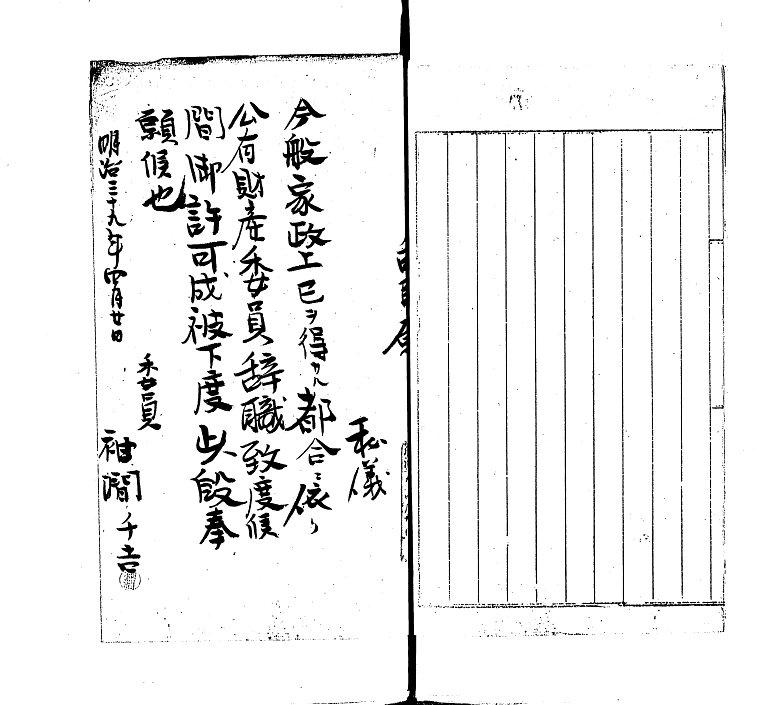 私儀
今般家政上已ヲ得サル都合ニ依リ
公有財産委員辞職致度候
間御許可成被下度此段奉
願候也
明治三十九年四月廿日
委員
袖澗千吉